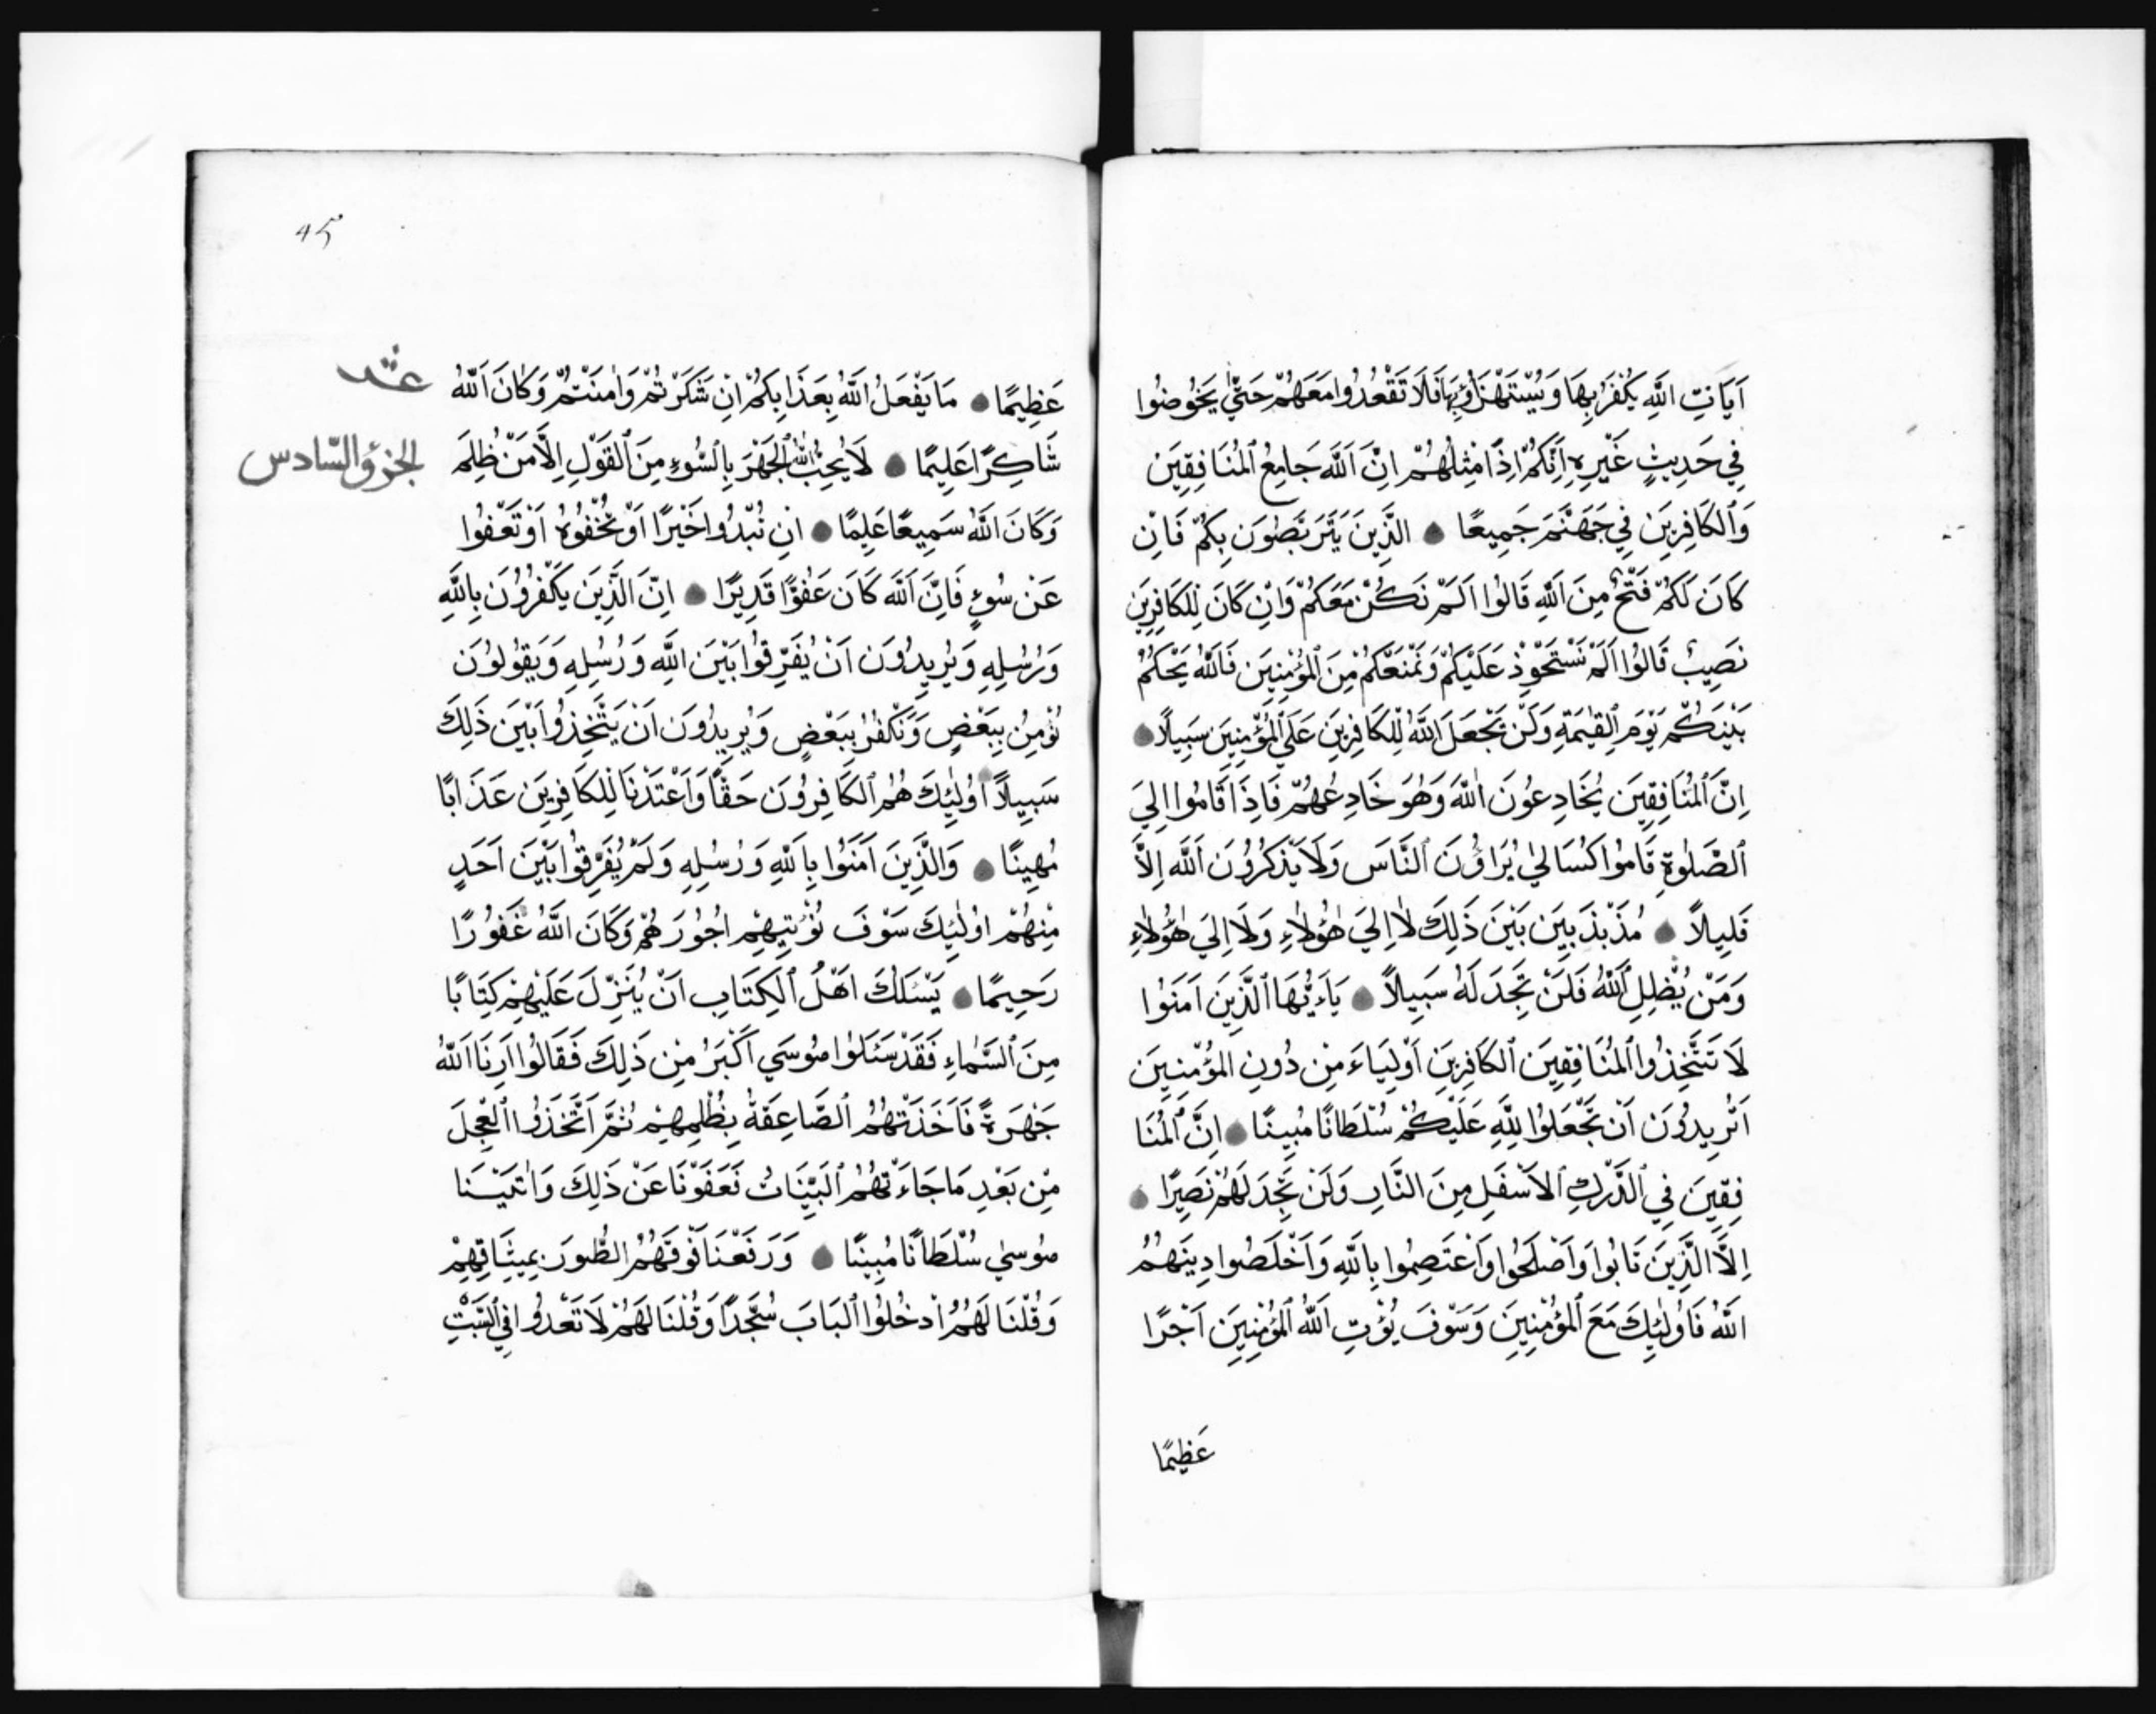 آيَاتِ اللَّهِ يُكْفَرُ بِهَا وَيُسْتَهْزَؤُ بِهَا فَلَا تَقْعُدُوا مَعَهُمْ حَتَّي يَخُوضُوا
فِي حَدِيثٍ غَيْرِهِ اِنَّكُمْ اِذًا مِثْلُهُمْ اِنَّ اَللَّهَ جَامِعُ ٱلْمُنَافِقِينَ
وَٱلكَافِرِينَ فِي جَهَنَّمَ جَمِيعًا ● الَّذِينَ يَتَرَبَّصُونَ بِكُمْ فَاِنْ
كَانَ لَكُمْ فَتْحٌ مِنَ اَللَّهِ قَالُوا اَلَمْ نَكُنْ مَعَكُمْ وَاِنْ كَانَ لِلكَافِرِينَ
نَصِيبٌ قَالُوا اَلَمْ نَسْتَحْوِذْ عَلَيْكُمْ وَنَمْنَعْكُمْ مِنَ ٱلْمُؤْمِنِينَ فَاللَّهُ يَحْكُمُ
بَيْنَكُمْ يَوْمَ ٱلقِيٰمَةِ وَلَنْ يَجْعَلَ اللَّهُ لِلْكَافِرِينَ عَلَي ٱلْمُؤْمِنِينَ سَبِيلًا ●
اِنَّ ٱلْمُنَافِقِينَ يُخَادِعُونَ اللَّهَ وَهُوَ خَادِعُهُمْ فَاِذَا قَامُوا اِلَيَ
ٱلصَّلٰوةِ قَامُوا كُسَالَيٰ يُرَاؤُنَ ٱلنَّاسَ وَلَا يَذْكُرُونَ اَللَّهَ اِلَّا
قَلِيلًا ● مُذَبْذَبِينَ بَيْنَ ذَلِكَ لَا اِلَيَ هٰؤُلَاءِ وَلَا اِلَيَ هٰؤُلَاءِ
وَمَنْ يُظْلِلِ ٱللَّهُ فَلَنْ تَجِدَ لَهُ سَبِيلًا ● يَاءَيُّهَا الَّذِينَ اَمَنُوا
لَا تَتَّخِذُوا ٱلْمُنَافِقِينَ ٱلكَافِرِينَ اَوْلِيَاءَ مِنْ دُونِ المُؤْمِنِينَ
اَتُرِيدُونَ اَنْ تَجْعَلُوا لِلَّهِ عَلَيْكُمْ سُلْطَانًا مُبِينًا ● اِنَّ ٱلْمُنَا
فِقِينَ فِي ٱلدَّرْكِ ٱلاَسْفَلِ مِنَ النَّارِ وَلَنْ تَجِدَ لَهُمْ نَصِيرًا ●
اِلَّا الَّذِينَ تَابُوا وَاَصْلَحُوا وَاَعْتَصِمُوا بِاللَّهِ وَاَخْلَصُوا دِينَهُمْ
اَللَّهُ فَاُولٰئِكَ مَعَ ٱلْمُؤْمِنِينَ وَسَوْفَ يُؤْتِ اَللَّهُ ٱلْمُؤْمِنِينَ اَجْرًا
عَظِيمًا
45
عَظِيمًا ● مَا يَفْعَلُ اَللَّهُ بِعَذَابِكُمْ اِنْ شَكَرْتُمْ وَاٰمَنْتُمْ وَكَانَ اَللَّهُ
شَاكِرًا عَلِيمًا ● لَا يُحِبُّ اللَّهُ ٱلْجَهْرَ بِالسُّوءِ مِنَ ٱلْقَوْلِ اِلَّا مَنْ ظُلِمَ
الجزؤ السّادس
وَكَانَ اَللَّهُ سَمِيعًا عَلِيمًا ● اِنْ تُبْدُوا خَيْرًا اَوْ تُخْفُوهُ اَوْ تَعْفُوا
عَنْ سُوءٍ فَاِنَّ اَللَّهَ كَانَ عَفُوًّا قَدِيرًا ● اِنَّ الَّذِينَ يَكْفُرُونَ بِاللَّهِ
وَرُسُلِهِ وَيُرِيدُونَ اَنْ يُفَرِّقُوا بَيْنَ اللَّهِ وَرُسُلِهِ وَيَقُولُونَ
نُؤْمِنُ بِبَعْضٍ وَنَكْفُرُ بِبَعْضٍ وَيُرِيدُونَ اَنْ يَتَّخِذُوا بَيْنَ ذَلِكَ
سَبِيلًا ● اُولٰئِكَ هُمُ ٱلكَافِرُونَ حَقًّا وَاَعْتَدْنَا لِلكَافِرِينَ عَذَابًا
مُهِينًا ● وَالَّذِينَ اَمَنُوا بِاَللَّهِ وَرُسُلِهِ وَلَمْ يُفَرِّقُوا بَيْنَ اَحَدٍ
مِنْهُمْ اوُلٰئِكَ سَوْفَ نُؤْتِيهِمْ اُجُورَهُمْ وَكَانَ اللَّهُ غَفُورًا
رَحِيمًا ● يَسْئَلُكَ اَهْلُ ٱلكِتَابِ اَنْ يُنَزِّلَ عَلَيْهِمْ كِتَابًا
مِنَ ٱلسَّمَاءِ فَقَدْ سَئَلُوا مُوسَي اَكْبَرُ مِنْ ذَلِكَ فَقَالُوا اَرِنَا اَللَّهُ
جَهْرَةً فَاَخَذَتْهُمُ ٱلصَّاعِقَةُ بِظُلْمِهِمْ ثُمَّ اَتَّخَذُوا ٱلعِجْلَ
مِنْ بَعْدِ مَا جَاءَتْهُمُ ٱلبَيِّنَاتُ فَعَفَوْنَا عَنْ ذَلِكَ وَاٰتَيْنَا
مُوسيٰ سُلْطَانًا مُبِينًا ● وَرَفَعْنَا فَوْقَهُمُ الطُّورَ بِمِيثَاقِهِمْ
وَقُلْنَا لَهُمُ اُدْخُلُوا ٱلبَابَ سُجَّدًا وَقُلْنَا لَهُمْ لَا تَعْدُوا فِي ٱلسَّبْتِ